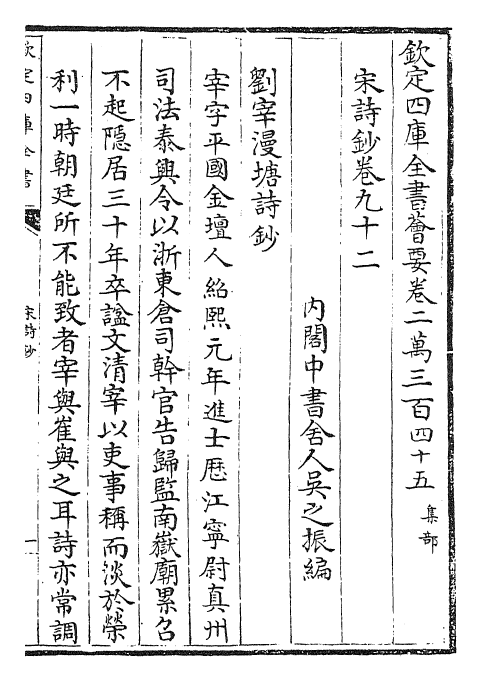 欽定四庫全書薈要卷二萬三百四十五 集部
宋詩鈔卷九十二
內閣中書舍人吳之振編
劉宰漫塘詩鈔
宰字平國金壇人紹熙元年進士厯江寧尉真州
司法泰興令以浙東倉司幹官告歸監南嶽廟累召
不起隱居三十年卒諡文清宰以吏事稱而淡於榮
利一時朝廷所不能致者宰與崔與之耳詩亦常調
欽定四庫全書
宋詩鈔
一